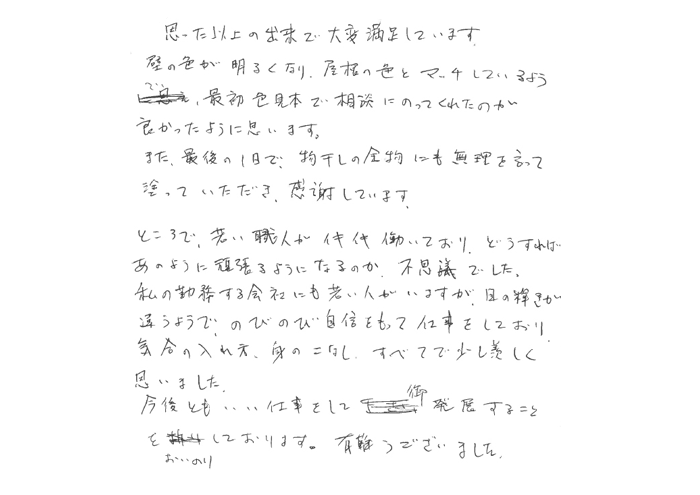 思った以上の出来で大変満足しています.
壁の色が明るくなり、屋根の色とマッチしているよう
で、最初色見本で相談にのってくれたのが
良かったように思います。
また、最後の1日で、物干しの金物にも無理を言って
塗っていただき、感謝しています.
ところで、若い職人がイキイキ働いており、どうすれば
あのように頑張るようになるのか、不思議でした.
私の勤務する会社にも若い人がいますが、目の輝きが
違うようで、のびのび自信をもって仕事をしており
気合の入れ方、身のこなし、すべてで少し羨しく
思いました.
今後ともいい仕事をして御発展すること
をおいのりしております。有難うございました.